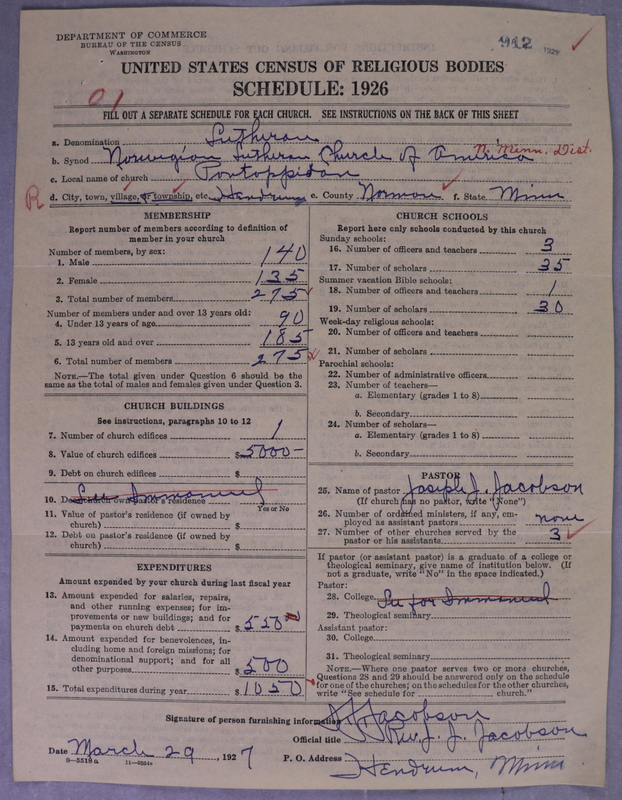 DEPARTMENT OF COMMERCE
BUREAU OF THE CENSUS
WASHINGTON
912
UNITED STATES CENSUS OF RELIGIOUS BODIES
SCHEDULE: 1926
01
FILL OUT A SEPARATE SCHEDULE FOR EACH CHURCH. SEE INSTRUCTIONS ON THE BACK OF THIS SHEET
a. Denomination Lutheran
b. Synod Norwegian Lutheran Church of America N. Minn. Dist.
c. Local name of church Pontoppidan
R d. City, town, village, or township, etc. Hendrum e. County Norman f. State Minn
MEMBERSHIP
Report number of members according to definition of
member in your church
Number of members, by sex:
1. Male 140
2. Female 135
3. Total number of members 275
Number of members under and over 13 years old:
4. Under 13 years of age 90
5. 13 years old and over 185
6. Total number of members 275
NOTE.—The total given under Question 6 should be the
same as the total of males and females given under Question 3.
CHURCH BUILDINGS
See instructions, paragraphs 10 to 12
7. Number of church edifices 1
8. Value of church edifices $5000-
9. Debt on church edifices $
See Immanuel
10. Does church own pastor's residence
Yes or No
11. Value of pastor's residence (if owned by
church) $
12. Debt on pastor's residence (if owned by
church) $
EXPENDITURES
Amount expended by your church during last fiscal year
13. Amount expended for salaries, repairs,
and other running expenses; for im-
provements or new buildings; and for
payments on church debt $550
14. Amount expended for benevolences, in-
cluding home and foreign missions; for
denominational support; and for all
other purposes $500
15. Total expenditures during year $1050
CHURCH SCHOOLS
Report here only schools conducted by this church
Sunday schools:
16. Number of officers and teachers 3
17. Number of scholars 35
Summer vacation Bible schools:
18. Number of officers and teachers 1
19. Number of scholars 30
Week-day religious schools:
20. Number of officers and teachers
21. Number of scholars
Parochial schools:
22. Number of administrative officers
23. Number of teachers—
a. Elementary (grades 1 to 8)
b. Secondary
24. Number of scholars—
a. Elementary (grades 1 to 8)
b. Secondary
PASTOR
25. Name of pastor Joseph J. Jacobson
(If church has no pastor, write "None")
26. Number of ordained ministers, if any, em-
ployed as assistant pastors none
27. Number of other churches served by the
pastor or his assistants 3
If pastor (or assistant pastor) is a graduate of a college or
theological seminary, give name of institution below. (If
not a graduate, write "No" in the space indicated.)
Pastor:
28. College See for Immanuel
29. Theological seminary
Assistant pastor:
30. College
31. Theological seminary
NOTE.—Where one pastor serves two or more churches,
Questions 28 and 29 should be answered only on the schedule
for one of the churches; on the schedules for the other churches,
write "See schedule for ........ church."
Signature of person furnishing information J. J. Jacobson
Official title Rev. J. J. Jacobson
Date March 29, 1927 P. O. Address Hendrum, Minn